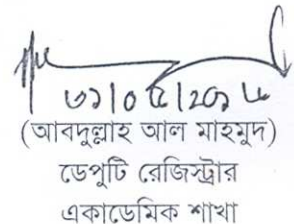 ৩১/০৫/২০১৮
(আবদুল্লাহ আল মাহমুদ)
ডেপুটি রেজিস্ট্রার
একাডেমিক শাখা